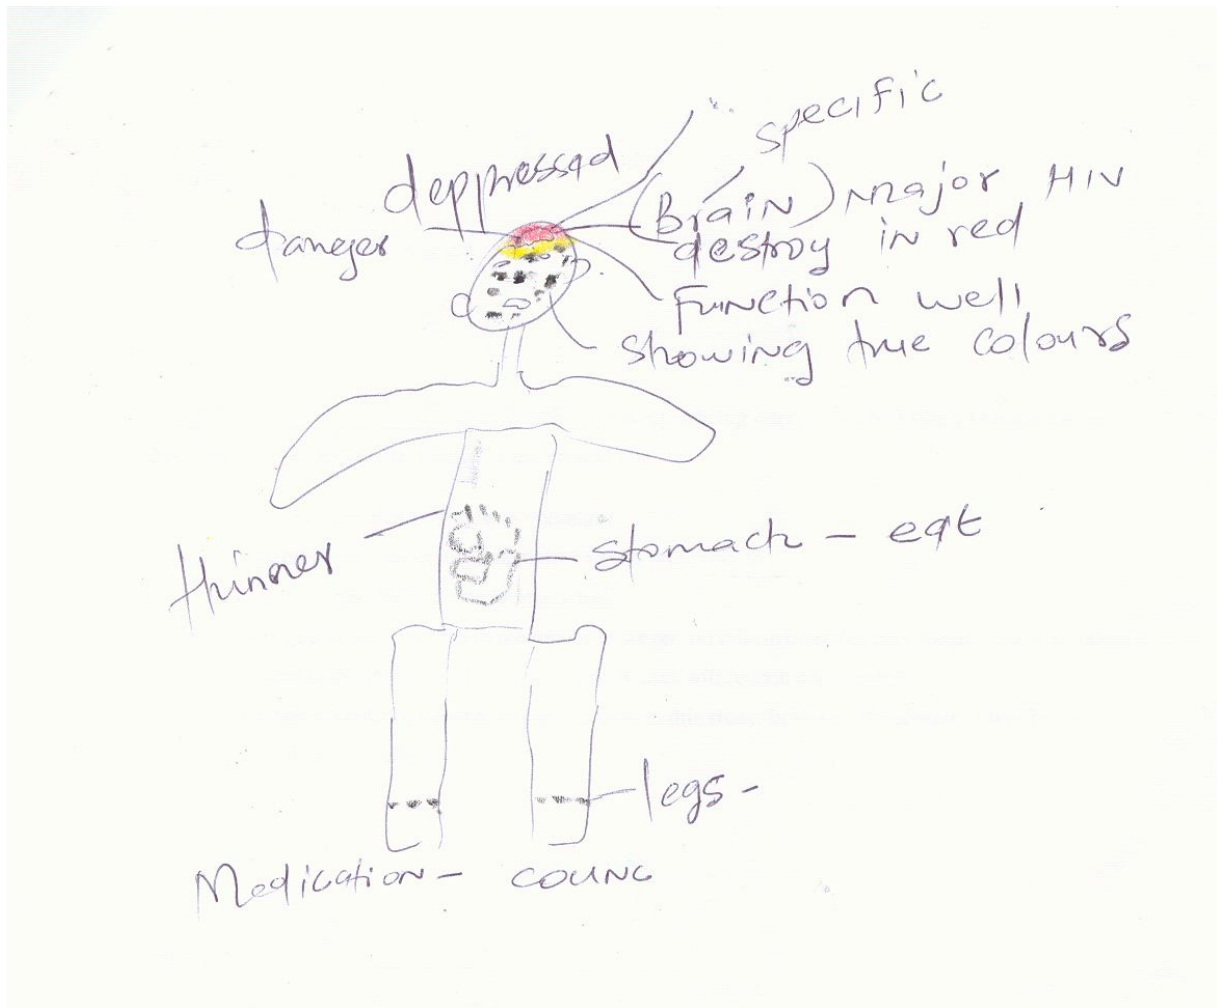 specific
deppressed
danger
(Brain) major HIV
destroy in red
Function well
showing true colours
thinner
stomach – eat
legs -
Medication - counc